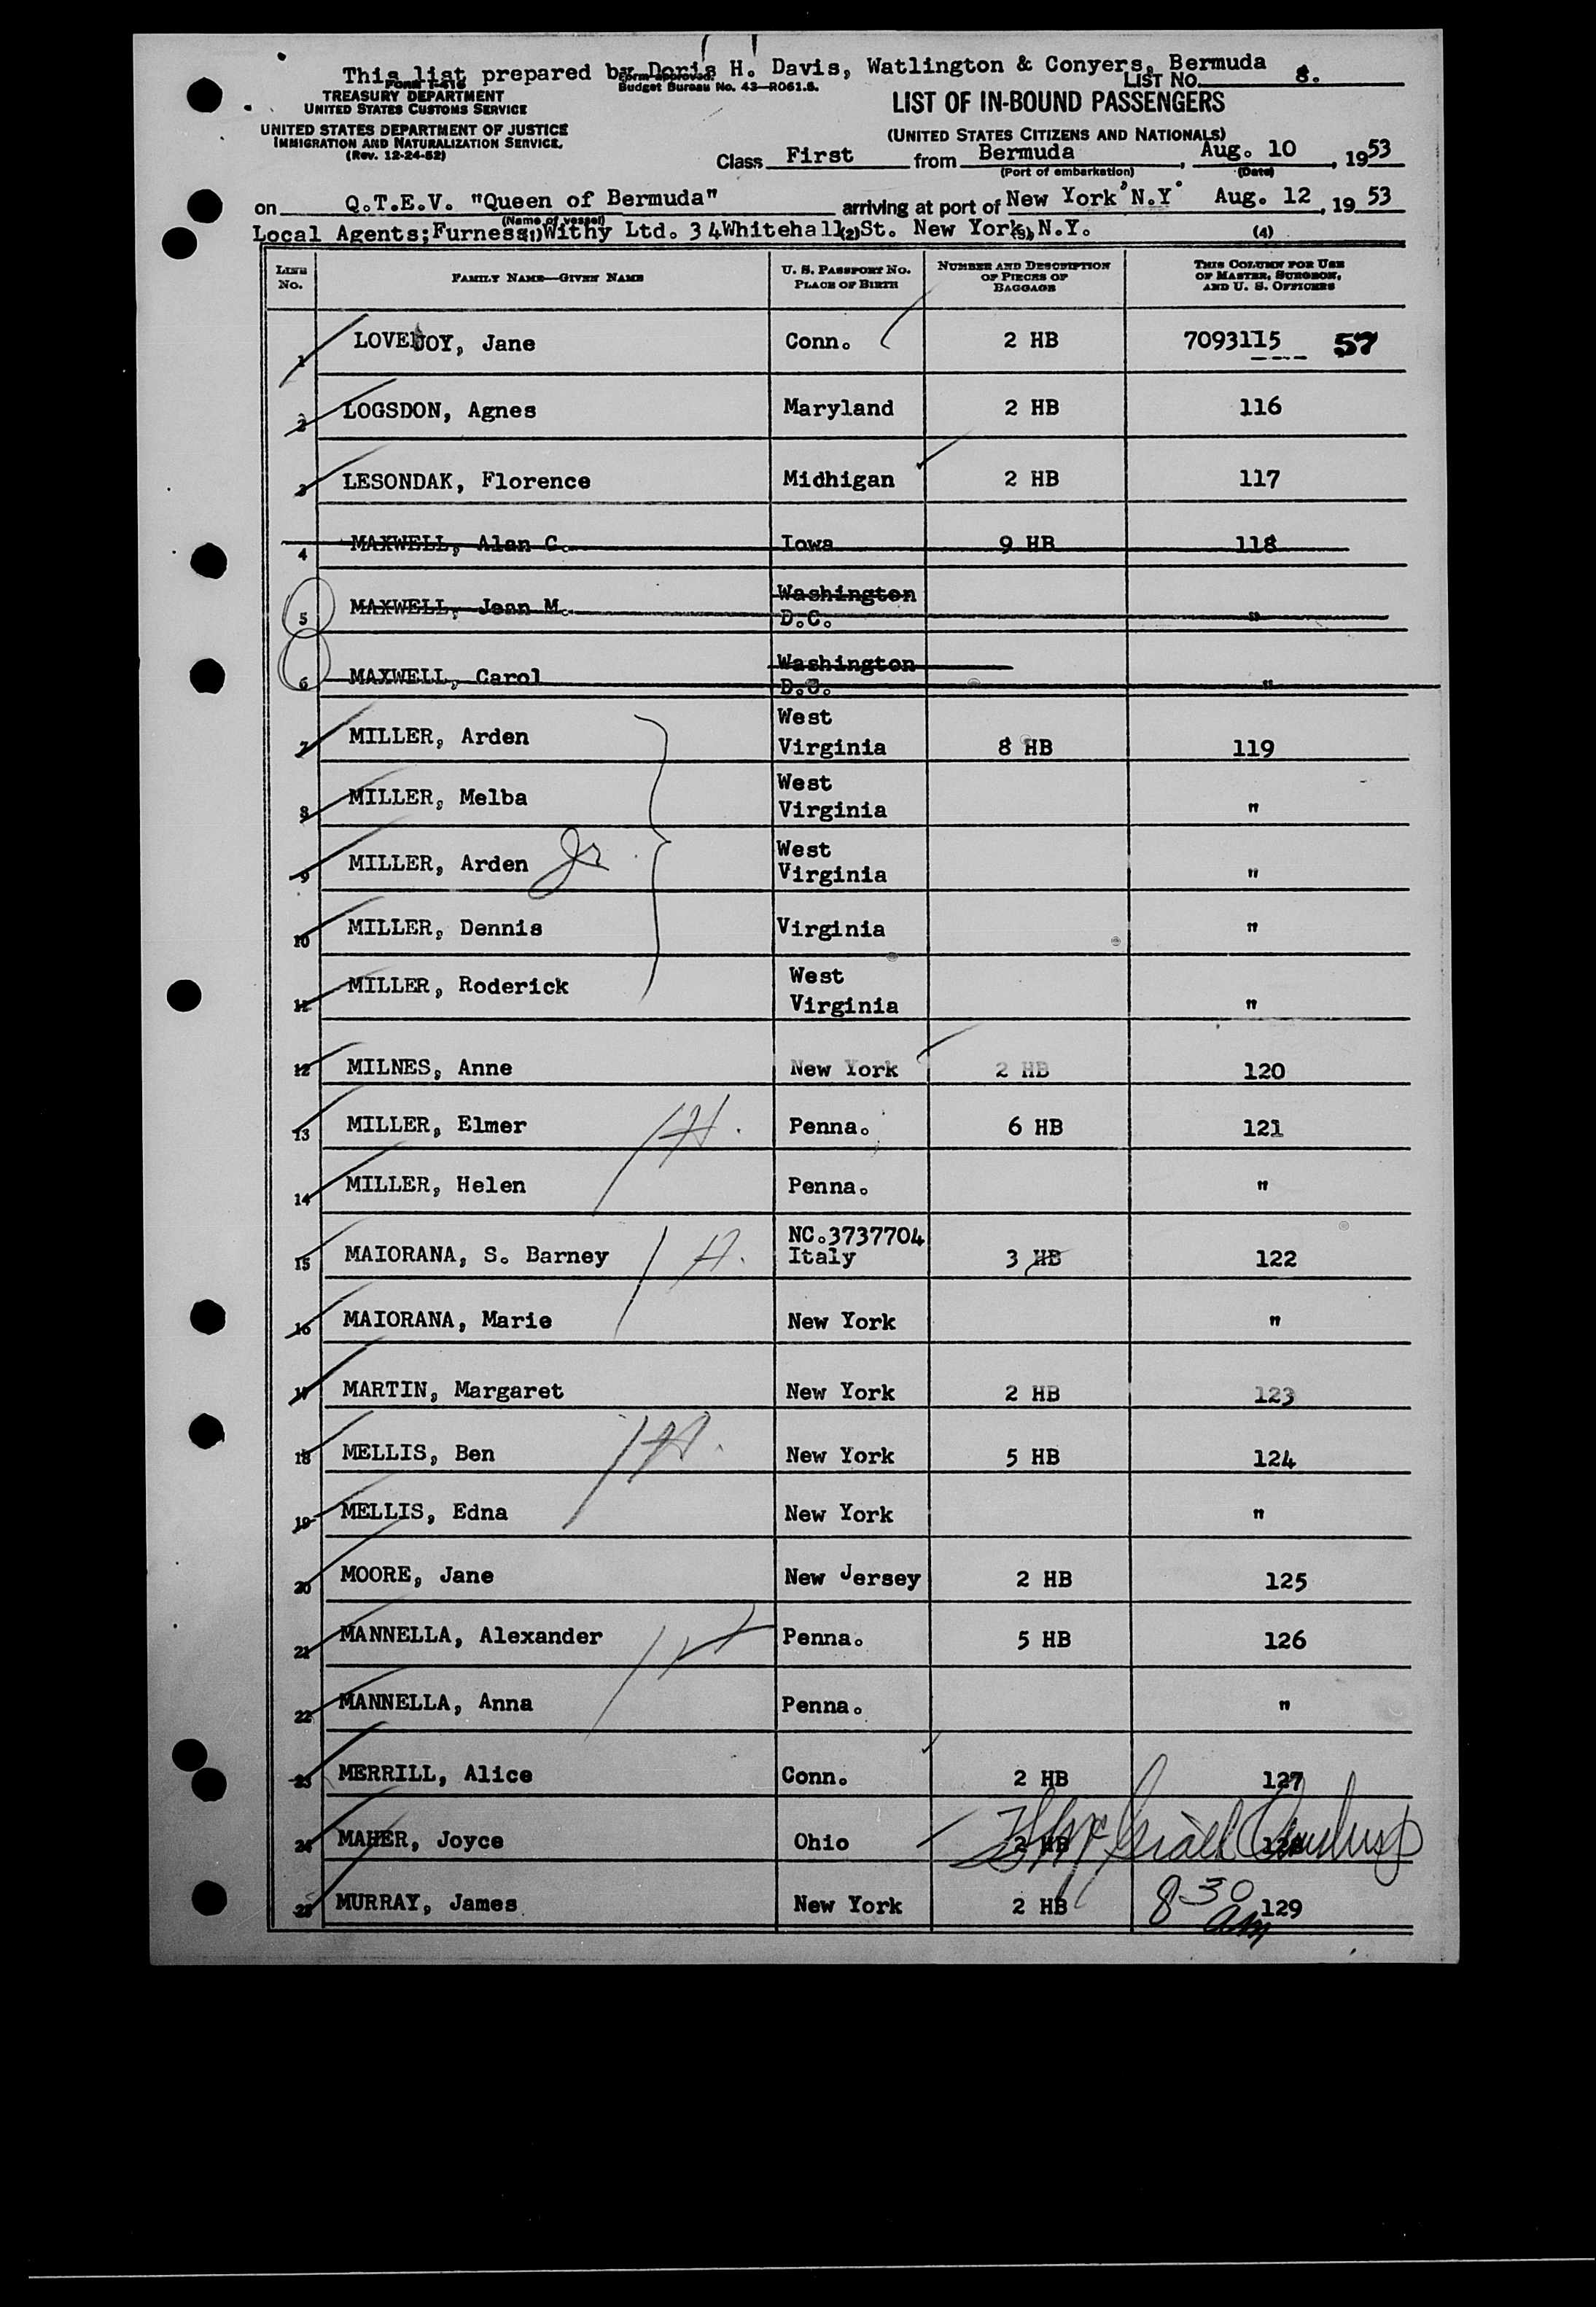 This list prepared by Doris H. Davis, Watlington & Conyers, Bermuda
Form I-416
Form approved.
Budget Bureau No. 43—R061.5.
LIST NO. 8.
TREASURY DEPARTMENT
UNITED STATES CUSTOMS SERVICE
UNITED STATES DEPARTMENT OF JUSTICE
IMMIGRATION AND NATURALIZATION SERVICE.
(Rev. 12-24-52)
LIST OF IN-BOUND PASSENGERS
(UNITED STATES CITIZENS AND NATIONALS)
Class First from Bermuda, Aug. 10, 1953
(Port of embarkation) (Date)
on Q.T.E.V. "Queen of Bermuda" arriving at port of New York, N.Y. Aug. 12, 19 53
(Name of vessel)
Local Agents; Furness, Withy Ltd. 34 Whitehall St. New York, N.Y.
(1) (2) (3) (4)
LINE NO. FAMILY NAME—GIVEN NAME U. S. PASSPORT NO. PLACE OF BIRTH NUMBER AND DESCRIPTION OF PIECES OF BAGGAGE THIS COLUMN FOR USE OF MASTER, SURGEON, AND U. S. OFFICERS
1 LOVEJOY, Jane Conn. 2 HB 7093115 57
2 LOGSDON, Agnes Maryland 2 HB 116
3 LESONDAK, Florence Midhigan 2 HB 117
4 MAXWELL, Alan C. Iowa 9 HB 118
5 MAXWELL, Jean M. Washington D.C. "
6 MAXWELL, Carol Washington D.C. "
7 MILLER, Arden West Virginia 8 HB 119
8 MILLER, Melba West Virginia "
9 MILLER, Arden Jr West Virginia "
10 MILLER, Dennis Virginia "
11 MILLER, Roderick West Virginia "
12 MILNES, Anne New York 2 HB 120
13 MILLER, Elmer Penna. 6 HB 121
14 MILLER, Helen Penna. "
15 MAIORANA, S. Barney NC.3737704 Italy 3 HB 122
16 MAIORANA, Marie New York "
17 MARTIN, Margaret New York 2 HB 123
18 MELLIS, Ben New York 5 HB 124
19 MELLIS, Edna New York "
20 MOORE, Jane New Jersey 2 HB 125
21 MANNELLA, Alexander Penna. 5 HB 126
22 MANNELLA, Anna Penna. "
23 MERRILL, Alice Conn. 2 HB 127
24 MAHER, Joyce Ohio 2 HB 128
25 MURRAY, James New York 2 HB 129
8 30 am